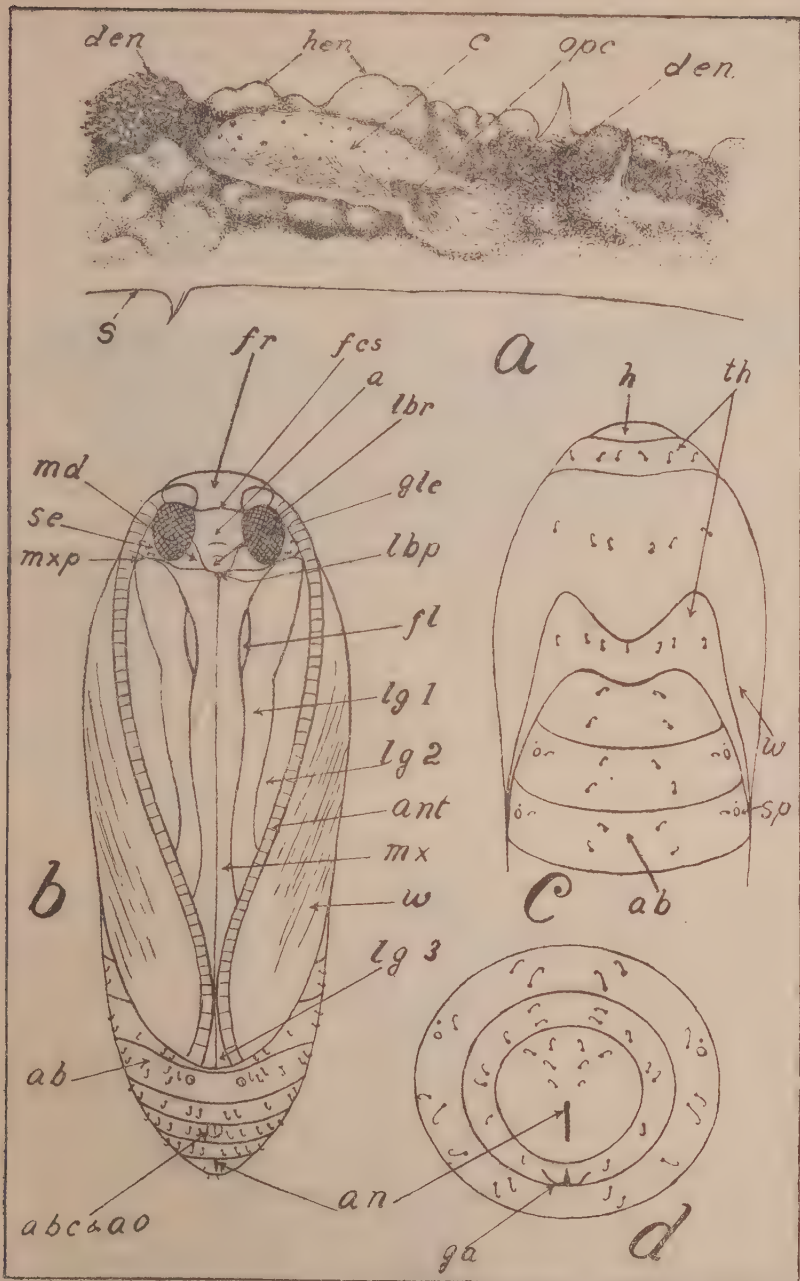 den
hen
c
opc
den.
s
a
fr
fcs
a
lbr
gle
lbp
md
se
mxp
fl
lg 1
lg 2
ant
mx
w
lg 3
b
ab
abc&ao
an
h
th
w
sp
c
ab
ga
d